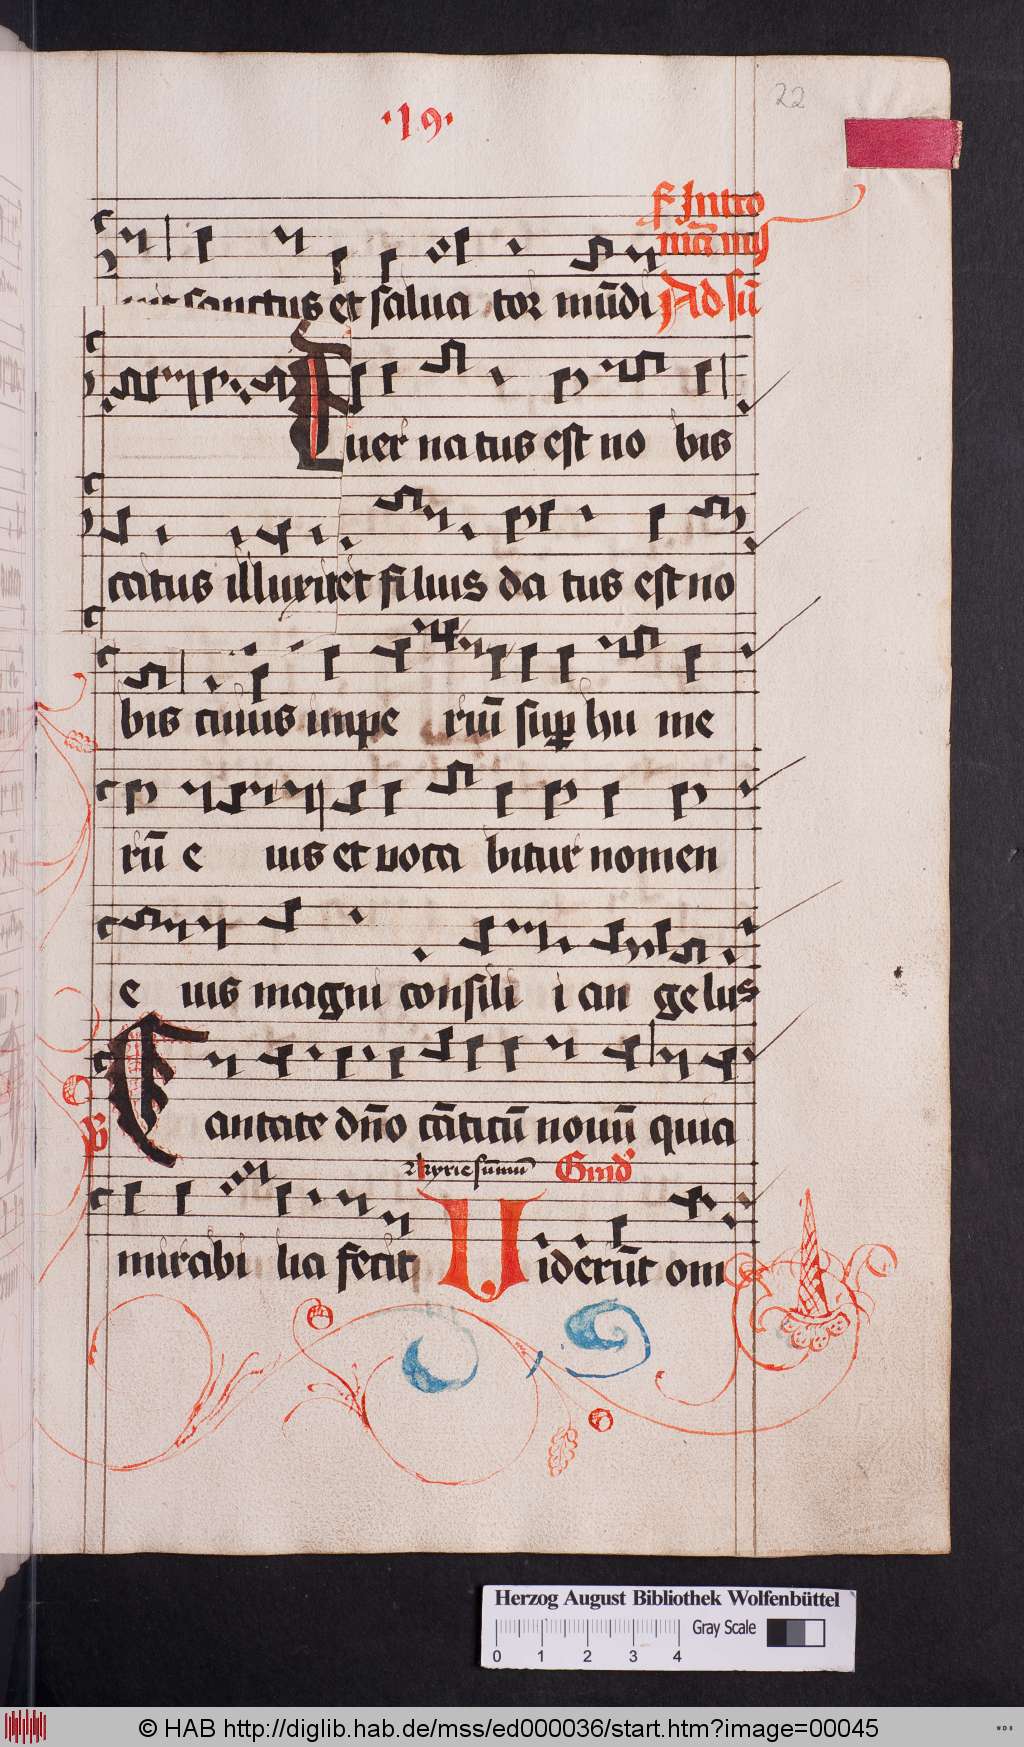 22
·19·
Intro
Ad sū
sanctus et salua tor mūdi
Puer na tus est no bis
catus illuxit et fi lius da tus est no
bis cuius impe riū suꝑ hu me
rū e ius et uoca bitur nomen
e ius magni consili i an gelus
Cantate dño cāticū nouū quia
kyrie sūmū Grad̕
mirabi lia fecit Uiderūt om
Herzog August Bibliothek Wolfenbüttel
0 1 2 3 4 Gray Scale
© HAB http://diglib.hab.de/mss/ed000036/start.htm?image=00045